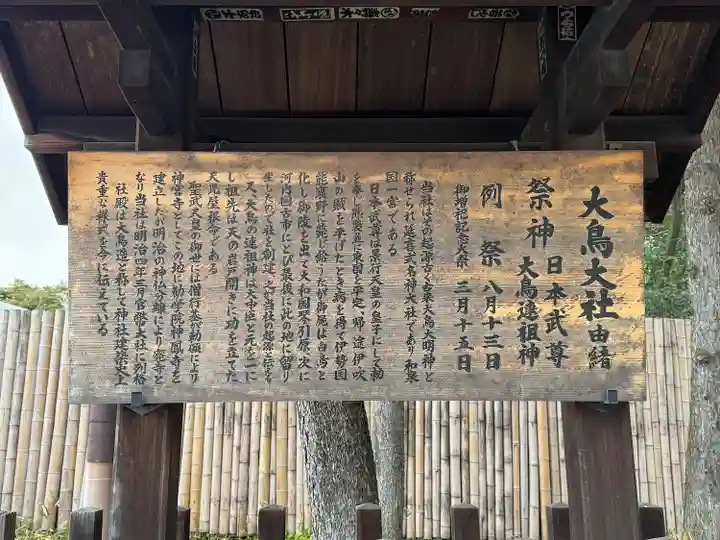 大鳥大社由緒
祭神 日本武尊
大鳥連祖神
例祭 八月十三日
御増祀記念大祭 三月十五日
当社は其の起源古く古来大鳥大明神と
称せられ延喜式名神大社であり和泉
国一宮である
日本武尊は景行天皇の皇子にして勅
を奉じ熊襲並に東国を平定、帰途伊吹
山の賊を平げたとき病を得て伊勢国
能褒野に薨じ給うたが御屍は白鳥と
化し御陵を出で大和国琴引原、次に
河内国古市にとび最後に此の地に留り
ましたので社を創建
又、大鳥の連祖神は大中臣と元を一に
し祖先は天の岩戸開きに功を立てた
天児屋根命である
聖武天皇の御世には僧行基が勅願により
神宮寺としてこの地に勧学院神鳳寺を
建立したが明治の神仏分離により廃寺と
なり当社は明治四年三月官幣大社に列格
社殿は大鳥造と称して神社建築史上
貴重な様式を今に伝えている